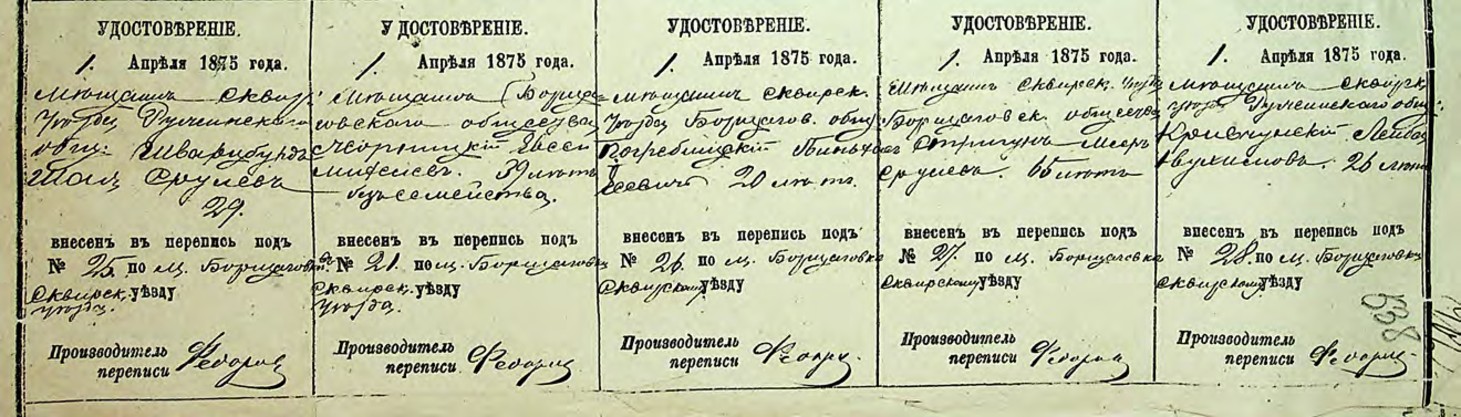 УДОСТОВѢРЕНІЕ.
1. Апрѣля 1875 года.
Мѣщанинъ Сквир.
Уѣзда
общ: Шварцбурдъ
Срулевъ
29.
внесенъ въ перепись подъ
№ 25. по м. Борщаговкѣ
Сквирск. уѣзду
уѣзда.
Производитель
переписи
УДОСТОВѢРЕНІЕ.
1. Апрѣля 1875 года.
Мѣщанинъ Борща-
говскаго общества
Чорницкій
39 лѣтъ
безъ семейства.
внесенъ въ перепись подъ
№ 21. по м. Борщаговкѣ
Сквирск. уѣзду
уѣзда.
Производитель
переписи
УДОСТОВѢРЕНІЕ.
1. Апрѣля 1875 года.
Мѣщанинъ Сквирск.
Уѣзда Борщагов. общ.
Погребицкій Пинхас
20 лѣтъ.
внесенъ въ перепись подъ
№ 26. по м. Борщаговкѣ
Сквирскому уѣзду
Производитель
переписи
УДОСТОВѢРЕНІЕ.
1. Апрѣля 1875 года.
Мѣщанинъ Сквирск. Уѣзда
Борщаговск. общества
Стригунъ Мееръ
Срулевъ. 65 лѣтъ
внесенъ въ перепись подъ
№ 27. по м. Борщаговкѣ
Сквирскому уѣзду
Производитель
переписи
УДОСТОВѢРЕНІЕ.
1. Апрѣля 1875 года.
Мѣщанинъ Сквирск.
уѣзда общ.
Лейба
26 лѣтъ
внесенъ въ перепись подъ
№ 28. по м. Борщаговкѣ
Сквирскому уѣзду
Производитель
переписи
538